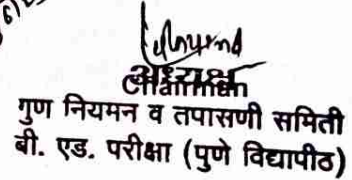 अध्यक्ष
Chairman
गुण नियमन व तपासणी समिती
बी. एड. परीक्षा (पुणे विद्यापीठ)